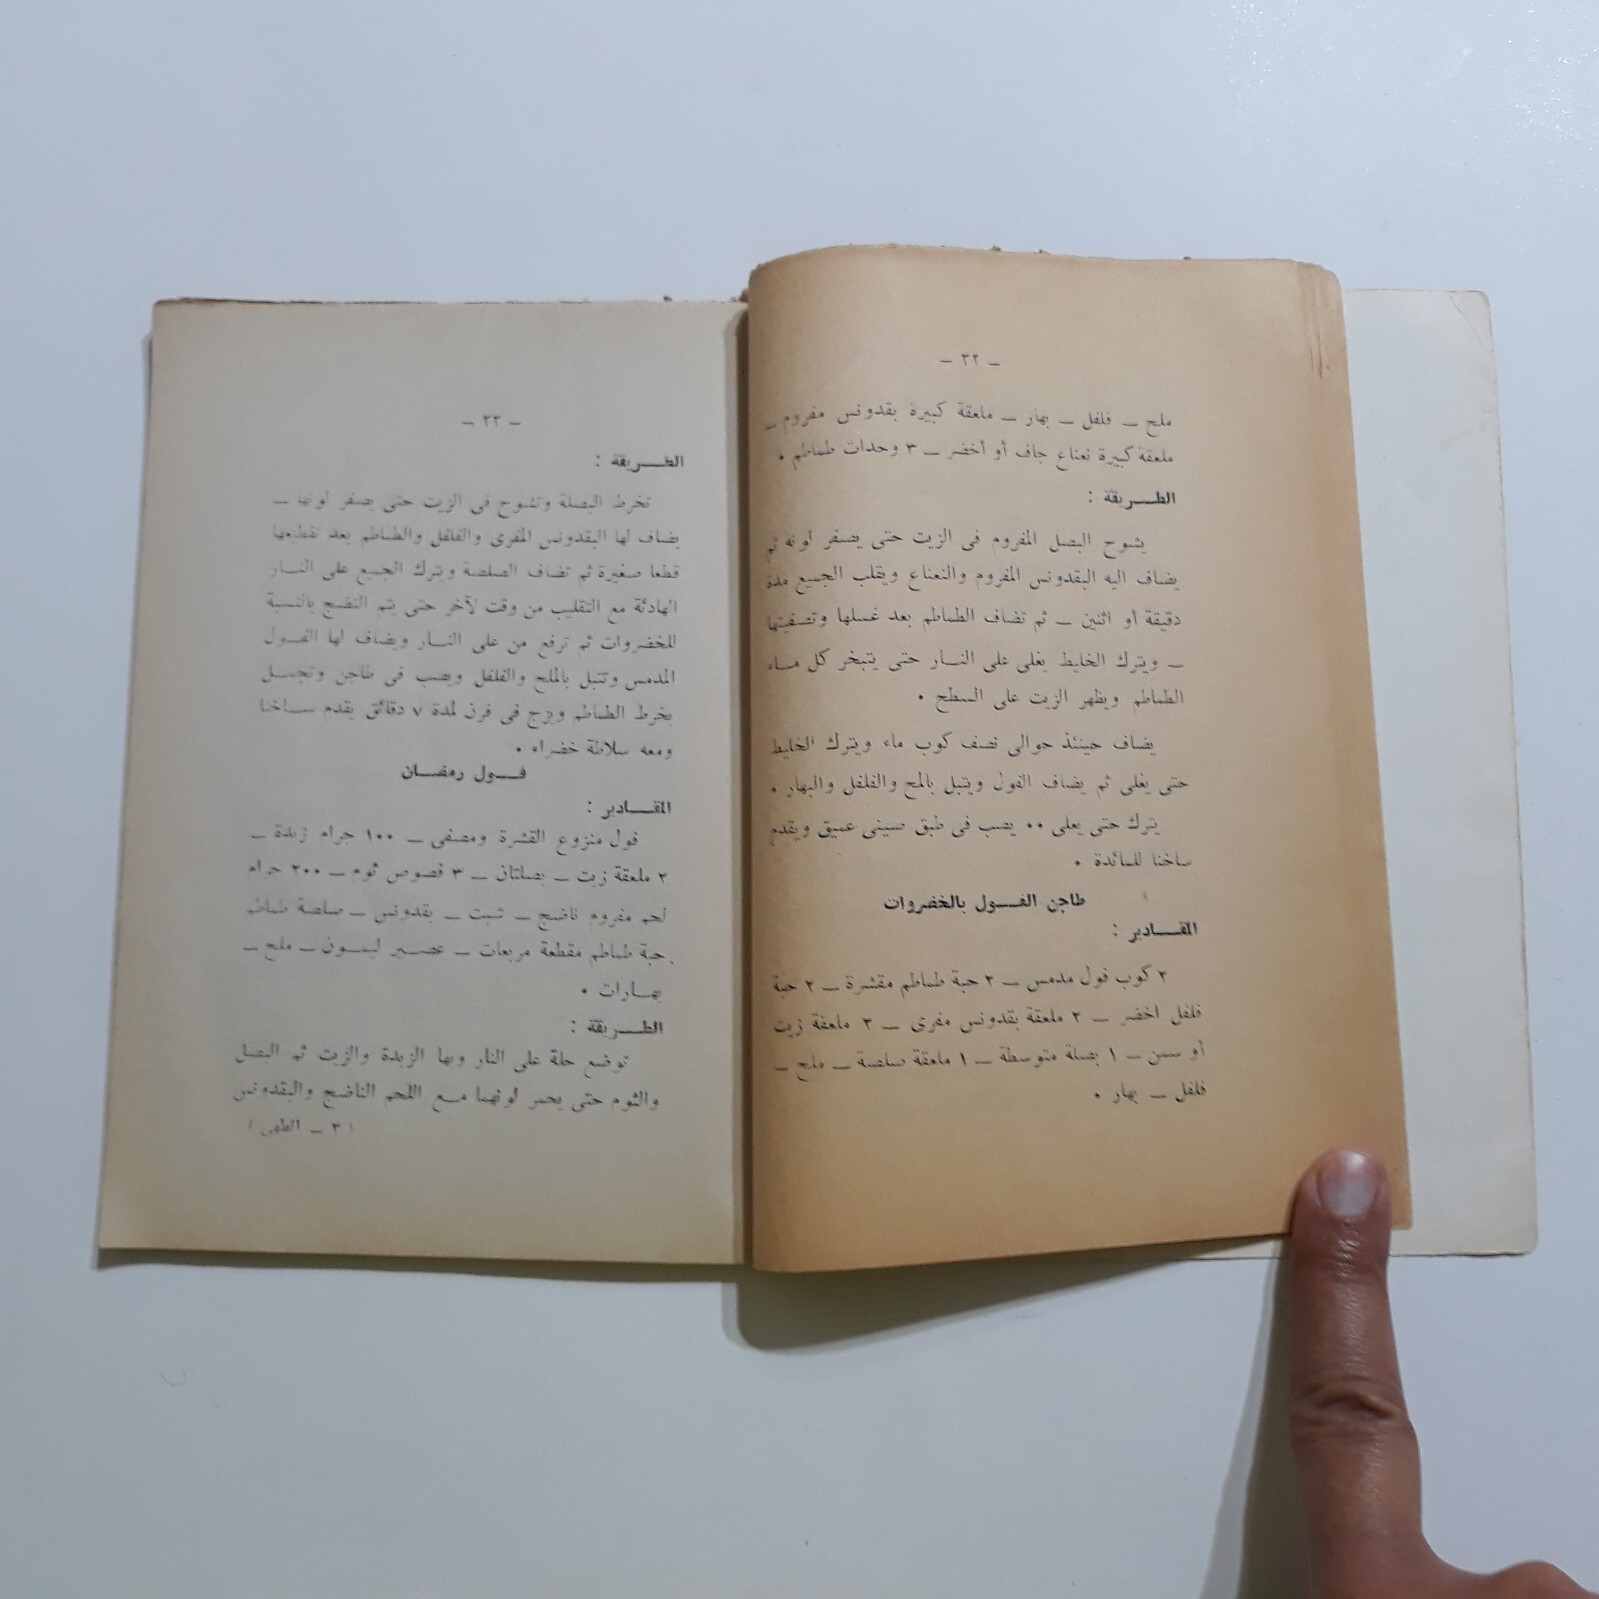 — ٣٢ —
ملح — فلفل — بهار — ملعقة كبيرة بقدونس مفروم —
ملعقة كبيرة نعناع جاف أو أخضر — ٣ وحدات طماطم •
الطـــريقة :
يشوح البصل المفروم فى الزيت حتى يصفر لونه ثم
يضاف اليه البقدونس المفروم والنعناع ويقلب الجميع مدة
دقيقة أو اثنين — ثم تضاف الطماطم بعد غسلها وتصفيتها
— ويترك الخليط يغلى على النــار حتى يتبخر كل مــاء
الطماطم ويظهر الزيت على السطح •
يضاف حينئذ حوالى نصف كوب ماء ويترك الخليط
حتى يغلى ثم يضاف الفول ويتبل بالملح والفلفل والبهار •
يترك حتى يغلى •• يصب فى طبق صينى عميق ويقدم
ساخنا للمائدة •
طاجن الفـــول بالخضروات
المقـــادير :
٢ كوب فول مدمس — ٢ حبة طماطم مقشرة — ٢ حبة
فلفل اخضر — ٢ ملعقة بقدونس مفرى — ٣ ملعقة زيت
أو سمن — ١ بصلة متوسطة — ١ ملعقة صلصة — ملح —
فلفل — بهار •
— ٣٣ —
الطـــريقة :
تخرط البصلة وتشوح فى الزيت حتى يصفر لونها —
يضاف لها البقدونس المفرى والفلفل والطماطم بعد تقطيعها
قطعا صغيرة ثم تضاف الصلصة ويترك الجميع على النــار
الهادئة مع التقليب من وقت لآخر حتى يتم النضج بالنسبة
للخضروات ثم ترفع من على النــار ويضاف لها الفــول
المدمس وتتبل بالملح والفلفل ويصب فى طاجن وتجمــل
بخرط الطماطم ويزج فى فرن لمدة ٧ دقائق يقدم ســاخنا
ومعه سلاطة خضراء •
فـــول رمضــان
المقـــادير :
فول منزوع القشرة ومصفى — ١٠٠ جرام زبدة —
٢ ملعقة زيت — بصلتان — ٣ فصوص ثوم — ٢٠٠ جرام
لحم مفروم ناضج — شبت — بقدونس — صلصة طماطم
حبة طماطم مقطعة مربعات — عصــير ليمــون — ملح —
بهــارات •
الطـــريقة :
توضع حلة على النار وبها الزبدة والزيت ثم البصل
والثوم حتى يحمر لونهما مــع اللحم الناضج والبقدونس
( ٣ — الطهى )